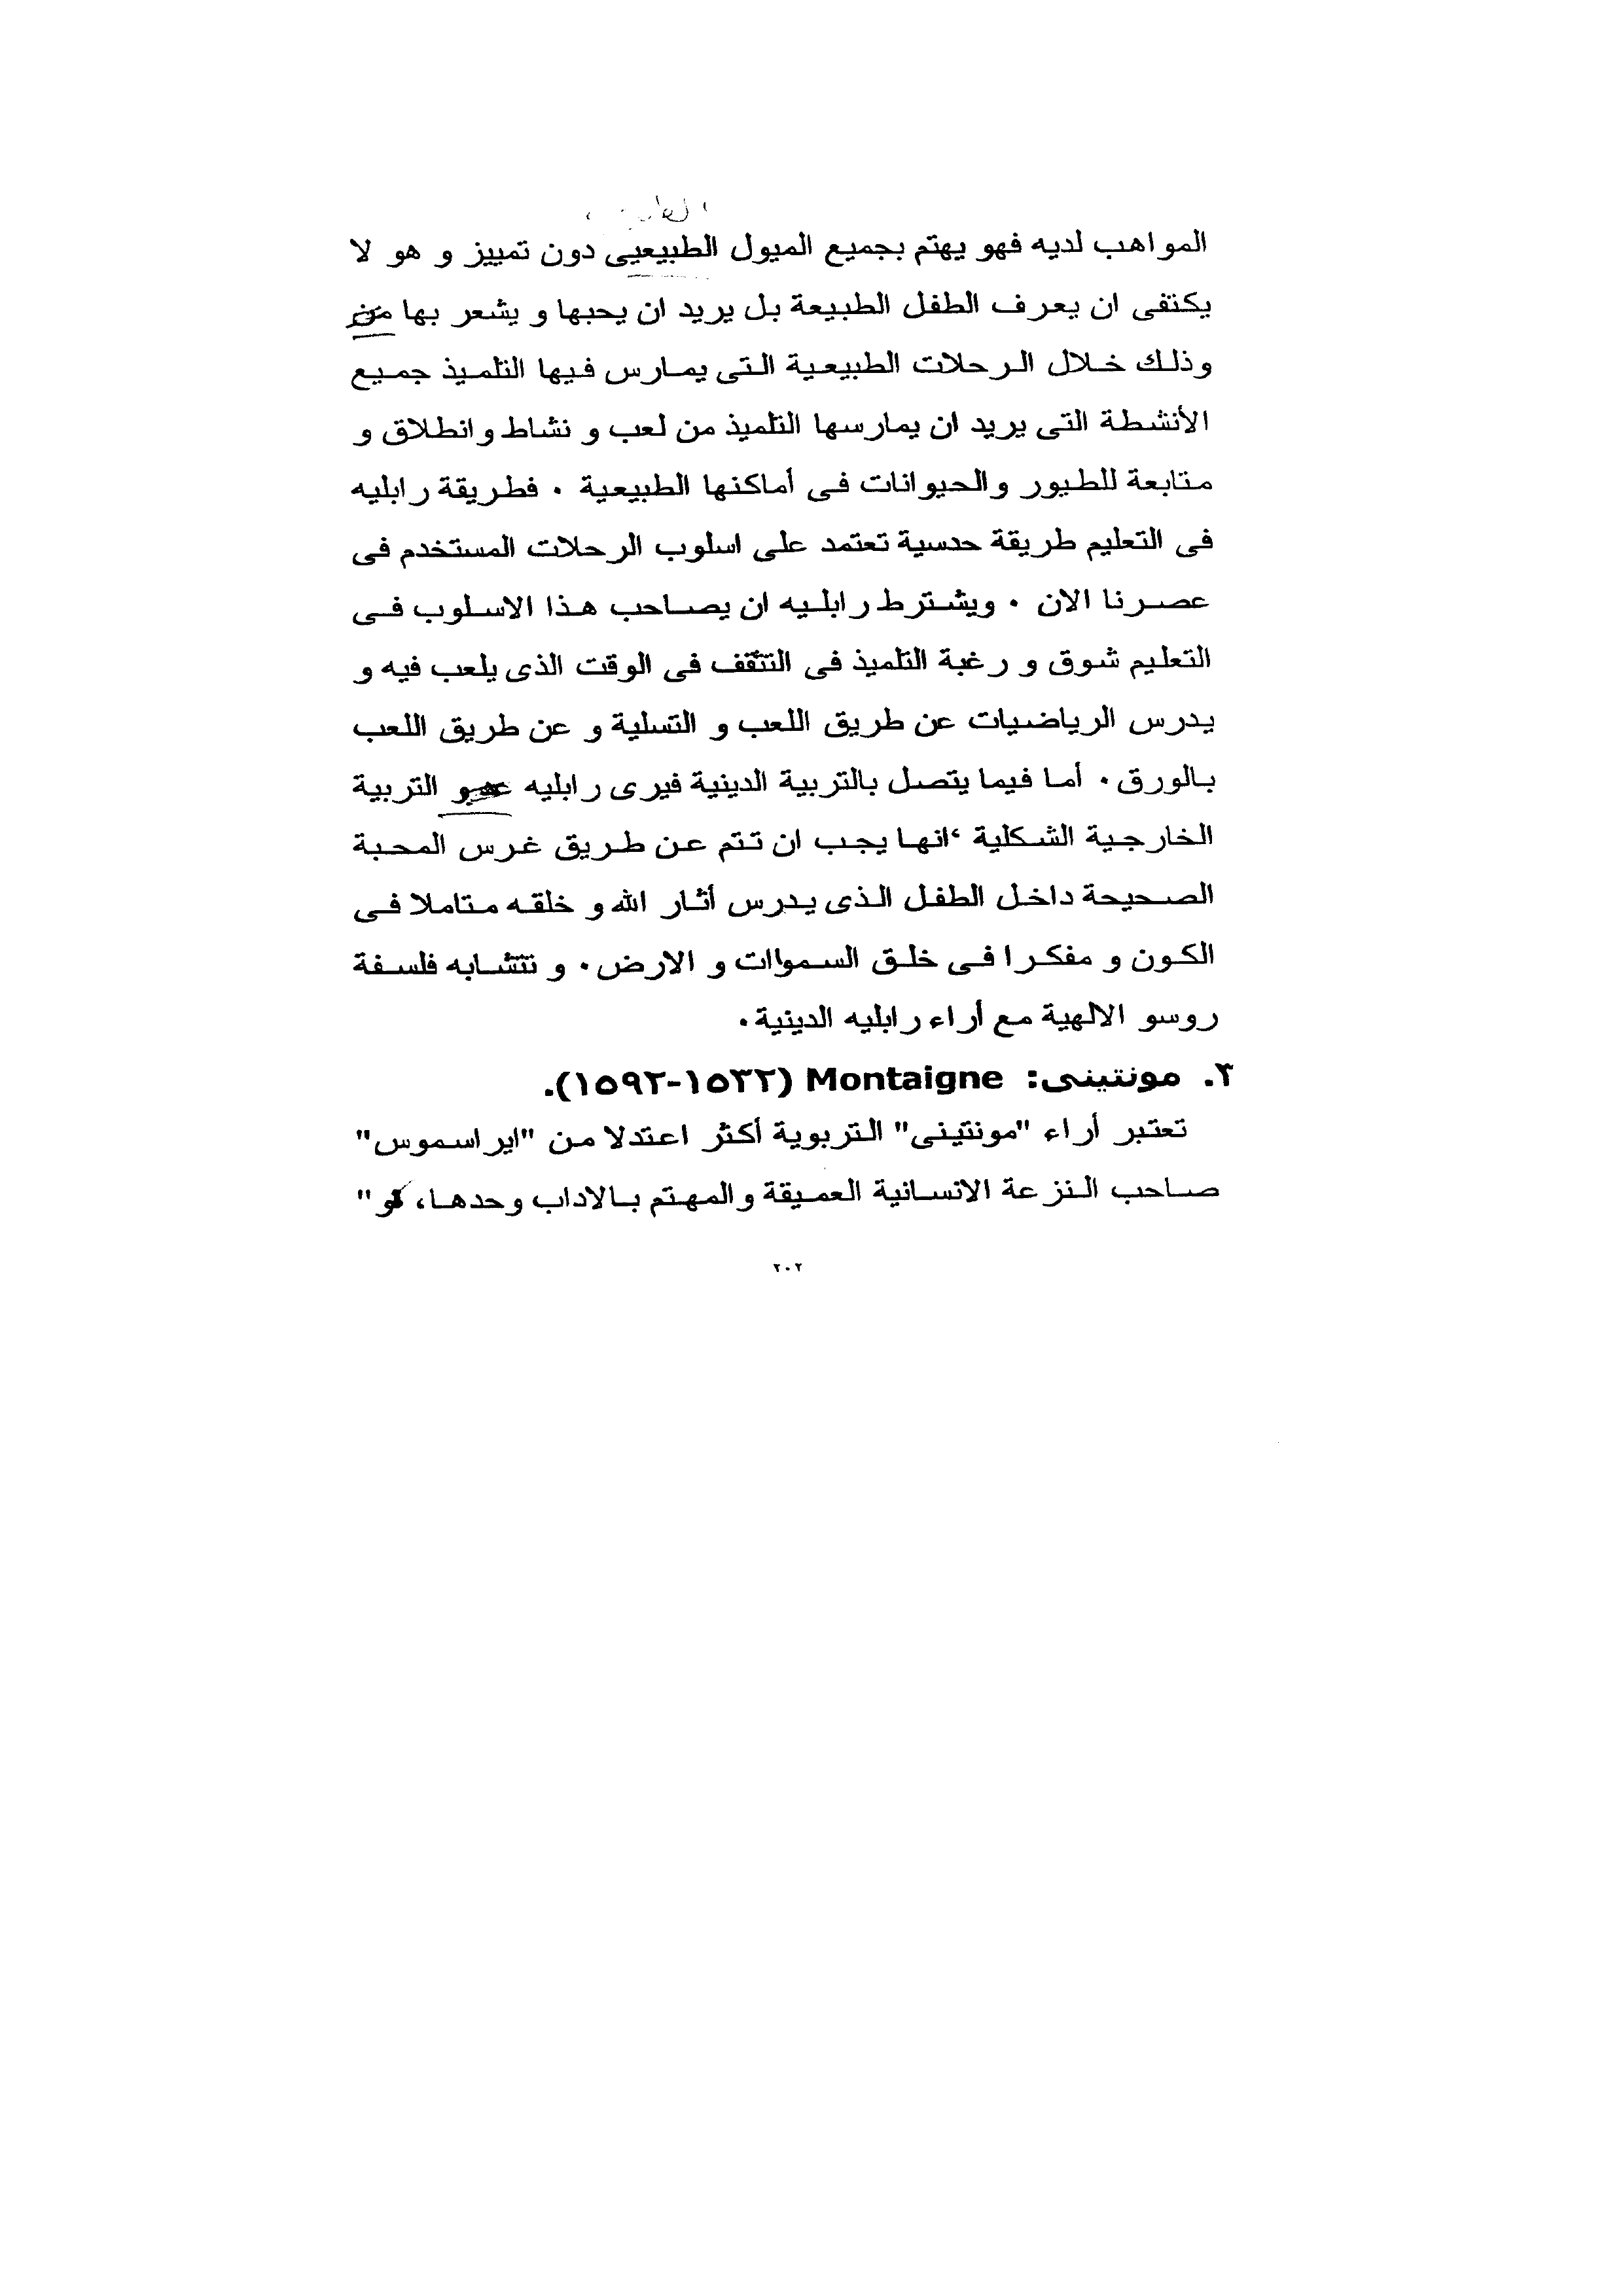 المواهب لديه فهو يهتم بجميع الميول الطبيعيى دون تمييز و هو لا
يكتفى ان يعرف الطفل الطبيعة بل يريد ان يحبها و يشعر بها من
وذلك خلال الرحلات الطبيعية التى يمارس فيها التلميذ جميع
الأنشطة التى يريد ان يمارسها التلميذ من لعب و نشاط وانطلاق و
متابعة للطيور والحيوانات فى أماكنها الطبيعية . فطريقة رابليه
فى التعليم طريقة حدسية تعتمد على اسلوب الرحلات المستخدم فى
عصرنا الان . ويشترط رابليه ان يصاحب هذا الاسلوب فى
التعليم شوق و رغبة التلميذ فى التثقف فى الوقت الذى يلعب فيه و
يدرس الرياضيات عن طريق اللعب و التسلية و عن طريق اللعب
بالورق . أما فيما يتصل بالتربية الدينية فيرى رابليه التربية
الخارجية الشكلية ،انها يجب ان تتم عن طريق غرس المحبة
الصحيحة داخل الطفل الذى يدرس أثار الله و خلقه متاملا فى
الكون و مفكرا فى خلق السمواات و الارض. و تتشابه فلسفة
روسو الالهية مع أراء رابليه الدينية.
٢. مونتينى: Montaigne (١٥٣٣-١٥٩٢).
تعتبر أراء "مونتينى" التربوية أكثر اعتدلا من "ايراسموس"
صاحب النزعة الانسانية العميقة والمهتم بالاداب وحدها، "
٢٠٢